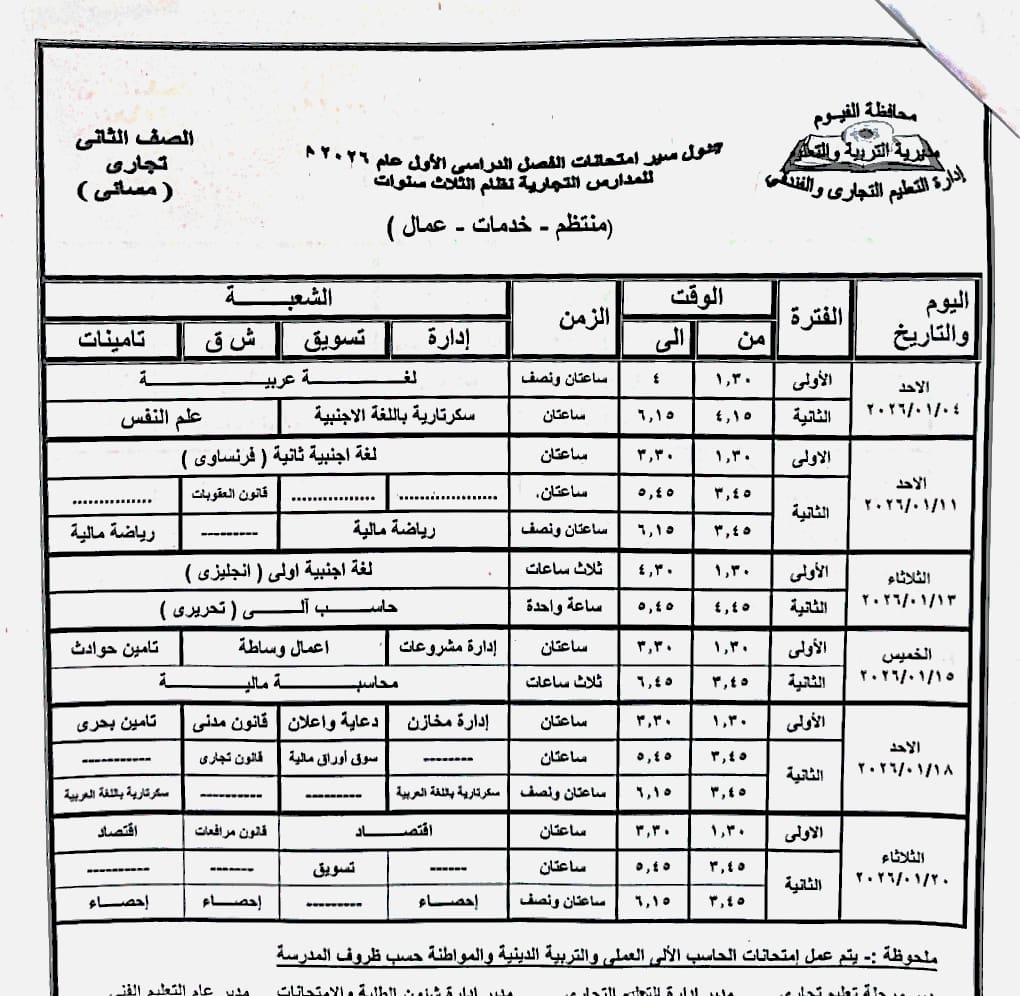 محافظة الفيوم
مديرية التربية والتعليم
إدارة التعليم التجارى والفندقى
جدول سير امتحانات الفصل الدراسى الأول عام ٢٠٢٦
للمدارس التجارية نظام الثلاث سنوات
(منتظم - خدمات - عمال )
الصف الثانى
تجارى
( مسائى )
اليوم والتاريخ الفترة الوقت الزمن الشعبـــــــة
من الى إدارة تسويق ش ق تامينات
الاحد ٢٠٢٦/٠١/٠٤ الأولى ١,٣٠ ٤ ساعتان ونصف لغـــــة عربيـــــــــة
الثانية ٤,١٥ ٦,١٥ ساعتان سكرتارية باللغة الاجنبية علم النفس
الاحد ٢٠٢٦/٠١/١١ الاولى ١,٣٠ ٣,٣٠ ساعتان لغة اجنبية ثانية ( فرنساوى )
الثانية ٣,٤٥ ٥,٤٥ ساعتان. .................. ................ قانون العقوبات ...............
٣,٤٥ ٦,١٥ ساعتان ونصف رياضة مالية --------- رياضة مالية
الثلاثاء ٢٠٢٦/٠١/١٣ الأولى ١,٣٠ ٤,٣٠ ثلاث ساعات لغة اجنبية اولى ( انجليزى )
الثانية ٤,٤٥ ٥,٤٥ ساعة واحدة حاســـــب آلـــــى ( تحريرى )
الخميس ٢٠٢٦/٠١/١٥ الأولى ١,٣٠ ٣,٣٠ ساعتان إدارة مشروعات اعمال وساطة تامين حوادث
الثانية ٣,٤٥ ٦,٤٥ ثلاث ساعات محاسبـــــــة ماليـــــــة
الاحد ٢٠٢٦/٠١/١٨ الأولى ١,٣٠ ٣,٣٠ ساعتان إدارة مخازن دعاية واعلان قانون مدنى تامين بحرى
الثانية ٣,٤٥ ٥,٤٥ ساعتان -------- سوق أوراق مالية قانون تجارى -----------
٣,٤٥ ٦,١٥ ساعتان ونصف سكرتارية باللغة العربية --------- ---------- سكرتارية باللغة العربية
الثلاثاء ٢٠٢٦/٠١/٢٠ الاولى ١,٣٠ ٣,٣٠ ساعتان اقتصـــــاد قانون مرافعات اقتصاد
الثانية ٣,٤٥ ٥,٤٥ ساعتان ------ تسويق ------- ----------
٣,٤٥ ٦,١٥ ساعتان ونصف إحصـــاء --------- إحصـــاء إحصـــاء
ملحوظة :- يتم عمل إمتحانات الحاسب الألى العملى والتربية الدينية والمواطنة حسب ظروف المدرسة
مدير مرحلة تعليم تجارى مدير إدارة التعليم التجارى مدير إدارة شئون الطلبة والامتحانات مدير عام التعليم الفنى